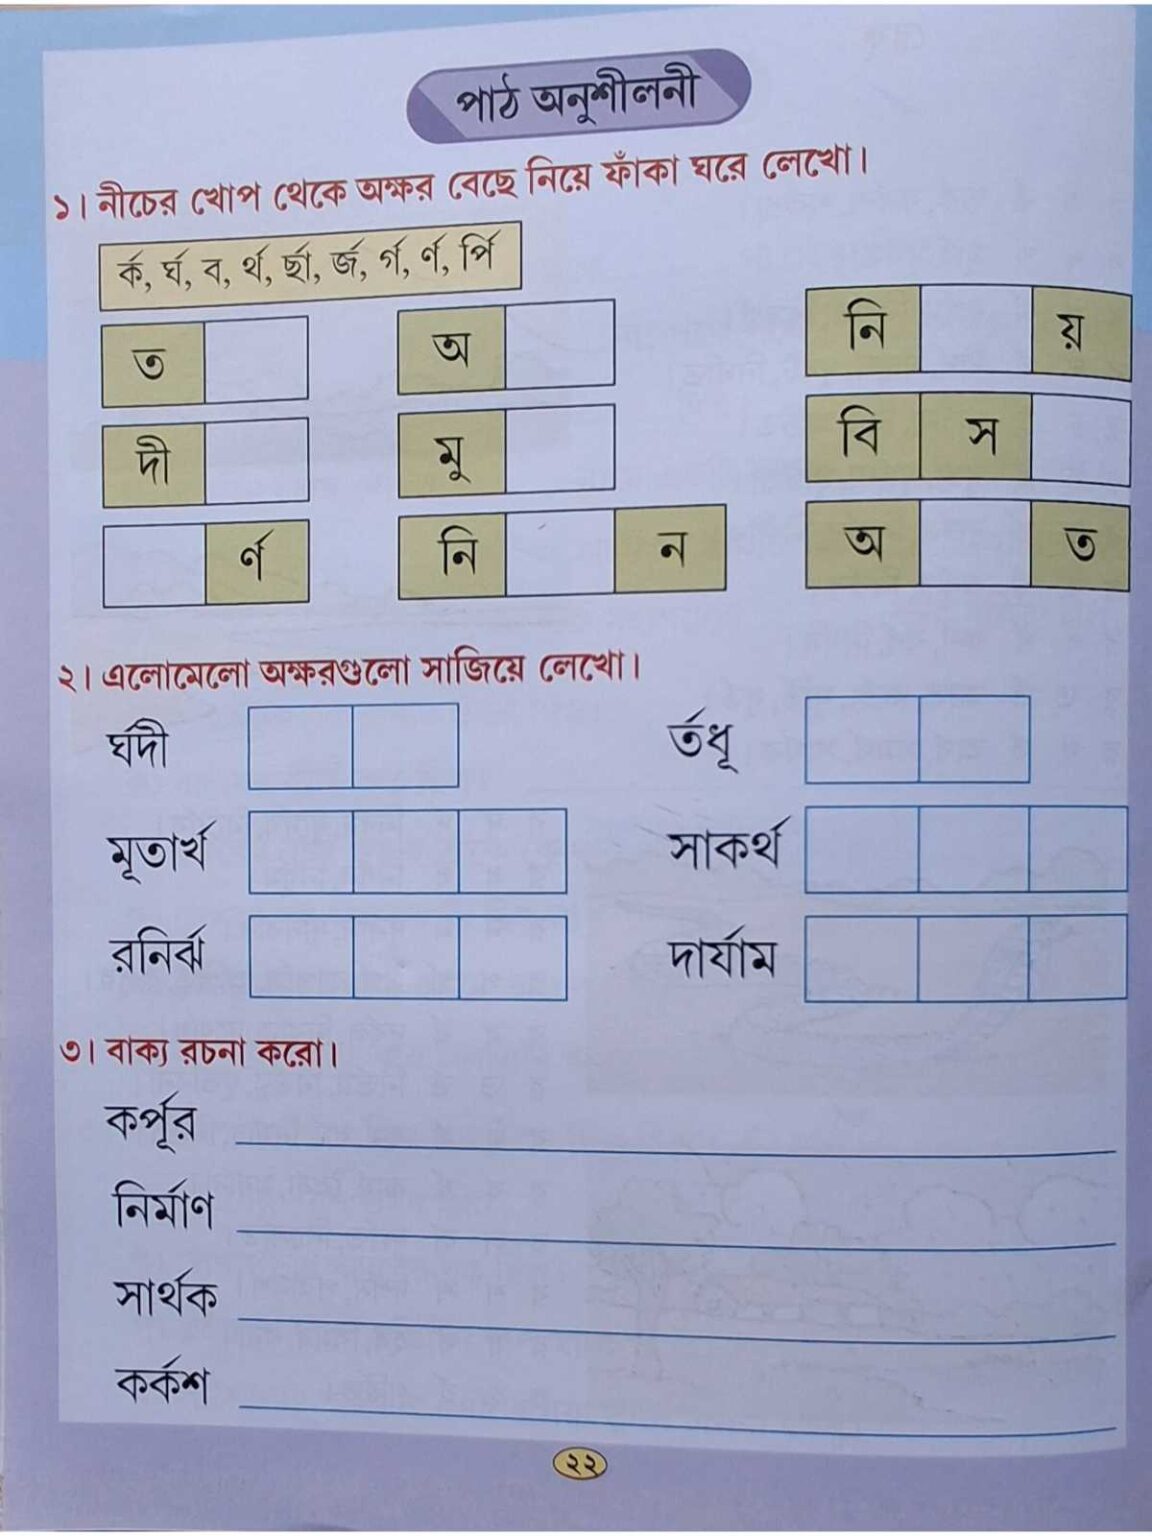 পাঠ অনুশীলনী
১। নীচের খোপ থেকে অক্ষর বেছে নিয়ে ফাঁকা ঘরে লেখো।
র্ক, র্ঘ, ব, র্থ, র্ছা, র্জ, র্গ, র্ণ, র্পি
ত অ নি য়
দী মু বি স
র্ণ নি ন অ ত
২। এলোমেলো অক্ষরগুলো সাজিয়ে লেখো।
র্ঘদী র্তধূ
মূতার্খ সাকর্থ
রনির্ঝ দার্যাম
৩। বাক্য রচনা করো।
কর্পূর
নির্মাণ
সার্থক
কর্কশ
২২